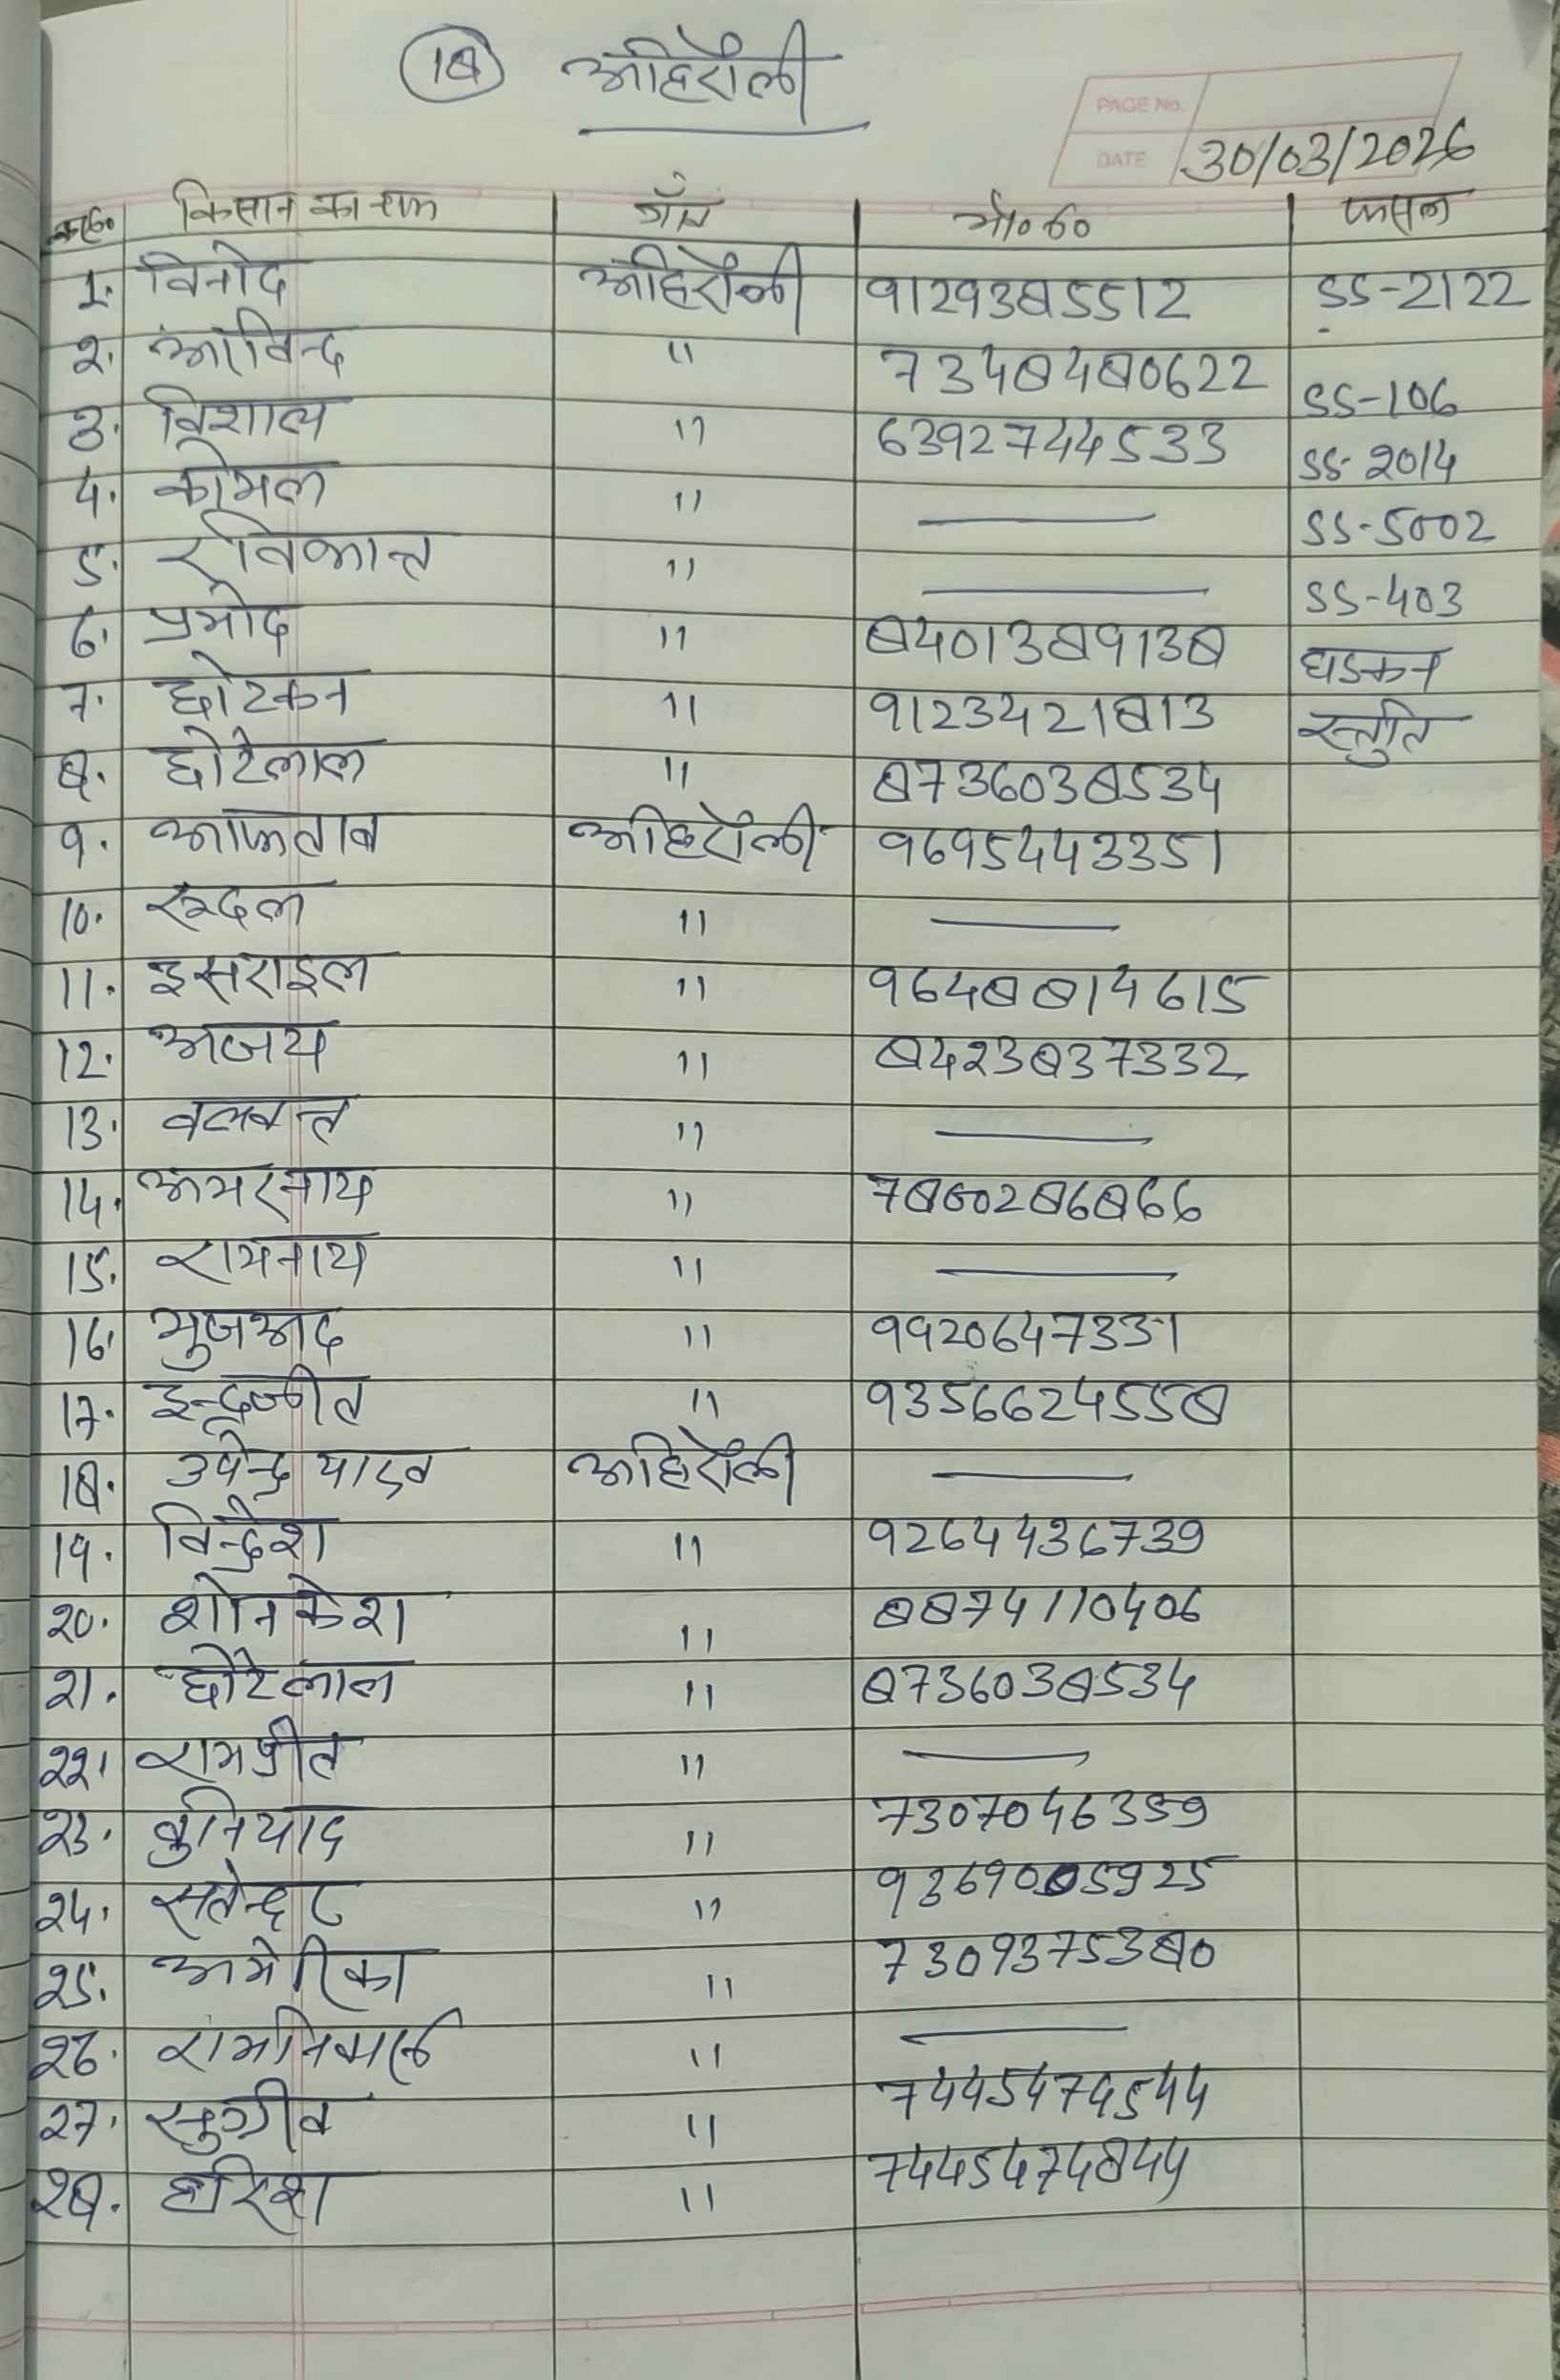 18 अहिरौली
PAGE No.
DATE 30/03/2026
क्र०सं० किसान का नाम गाँव मो०सं० फसल
1. विनोद अहिरौली 9129385512 SS-2122
२. अरविन्द " 7348480622 SS-106
3. विशाल " 6392744533 SS-2014
4. कोमल " — SS-5002
5. रविकान्त " — SS-403
6. प्रमोद " 8401389138 धडकन
7. छोटकन " 9123421813 स्तुति
8. छोटेलाल " 8736038534
9. आफताब अहिरौली 9695443351
10. रूदल " —
11. इसराइल " 9648814615
12. अजय " 8423837332
13. बलवन्त " —
14. अमरनाथ " 7860286866
15. रामनाथ " —
16. " 9920647331
17. इन्द्रजीत " 9356624558
18. उपेन्द्र यादव अहिरौली —
19. विन्द्रेश " 9264436739
२0. शोनकेश " 8874110406
२1. छोटेलाल " 8736038534
२२. रामप्रीत " —
२3. बुनियाद " 7307046359
२4. सतेन्दर " 9369005925
२5. अमेरिका " 7309375380
२6. " —
२7. सुग्रीव " 7445474544
२8. हरिश " 7445474844